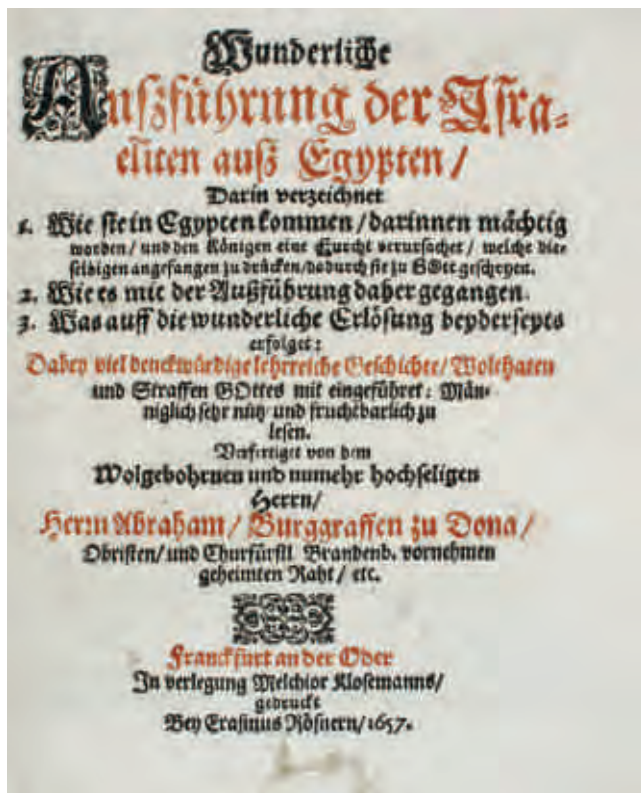 Wunderliche
Außführung der Jsra-
eliten auß Egypten /
Darin verzeichnet
1. Wie sie in Egypten kommen / darinnen mächtig
worden / und den Königen eine Furcht verursachet / welche die-
selbigen angefangen zu drücken / dadurch sie zu GOtt geschryen.
2. Wie es mit der Außführung daher gegangen.
3. Was auff die wunderliche Erlösung beyderseyts
erfolget:
Dabey viel denckwürdige lehrreiche Geschichte / Wolthaten
und Straffen GOttes mit eingeführet: Män-
niglich sehr nütz und fruchtbarlich zu
lesen.
Verfertiget von dem
Wolgebohrnen und numehr hochseligen
Herrn /
Herrn Abraham / Burggraffen zu Dona /
Obristen / und Churfürstl. Brandenb. vornehmen
geheimten Raht / etc.
Franckfurt an der Oder
Jn verlegung Melchior Klosemanns /
gedruckt
Bey Erasmus Rösnern / 1657.